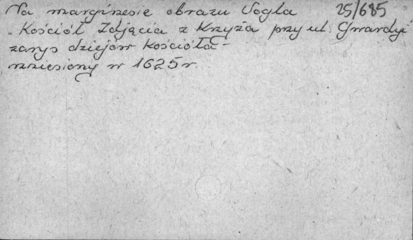 Na marginesie obrazu Vogla 25/685
"Kościół Zdjęcia z Krzyża przy ul. Gwardyi
zarys dziejów kościoła -
wzniesiony w 1625 r.